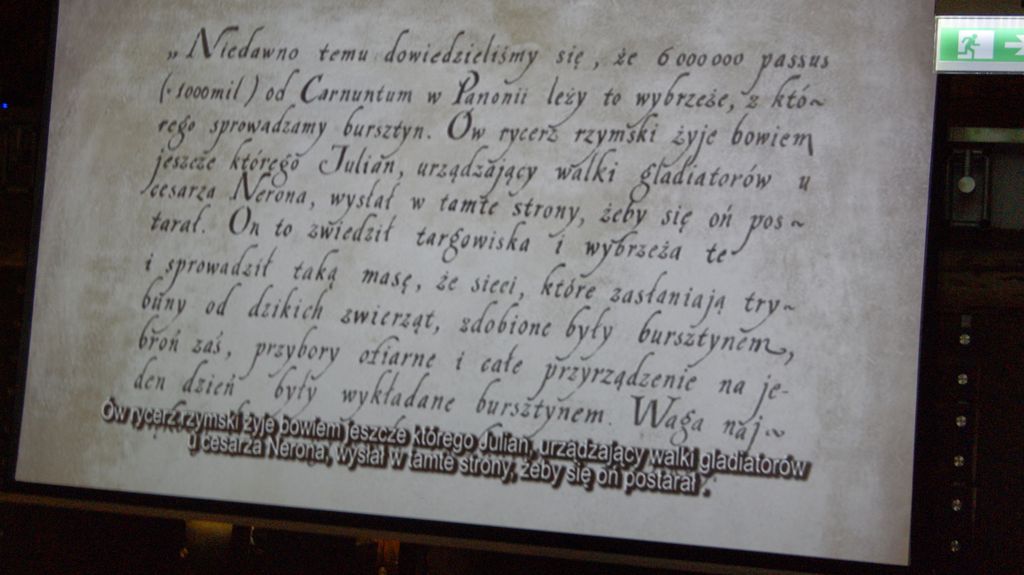 „Niedawno temu dowiedzieliśmy się, że 6 000 000 passus
(·1000mil) od Carnuntum w Panonii leży to wybrzeże, z któ~
rego sprowadzamy bursztyn. Ów rycerz rzymski żyje bowiem
jeszcze którego Julian, urządzający walki gladiatorów u
cesarza Nerona, wysłał w tamte strony, żeby się oń pos~
tarał. On to zwiedził targowiska i wybrzeża te
i sprowadził taką masę, że sieci, które zasłaniają try~
buny od dzikich zwierząt, zdobione były bursztynem,
broń zaś, przybory ofiarne i całe przyrządzenie na je-
den dzień były wykładane bursztynem. Waga naj~
Ów rycerz rzymski żyje bowiem jeszcze którego Julian, urządzający walki gladiatorów
u cesarza Nerona, wysłał w tamte strony, żeby się oń postarał .